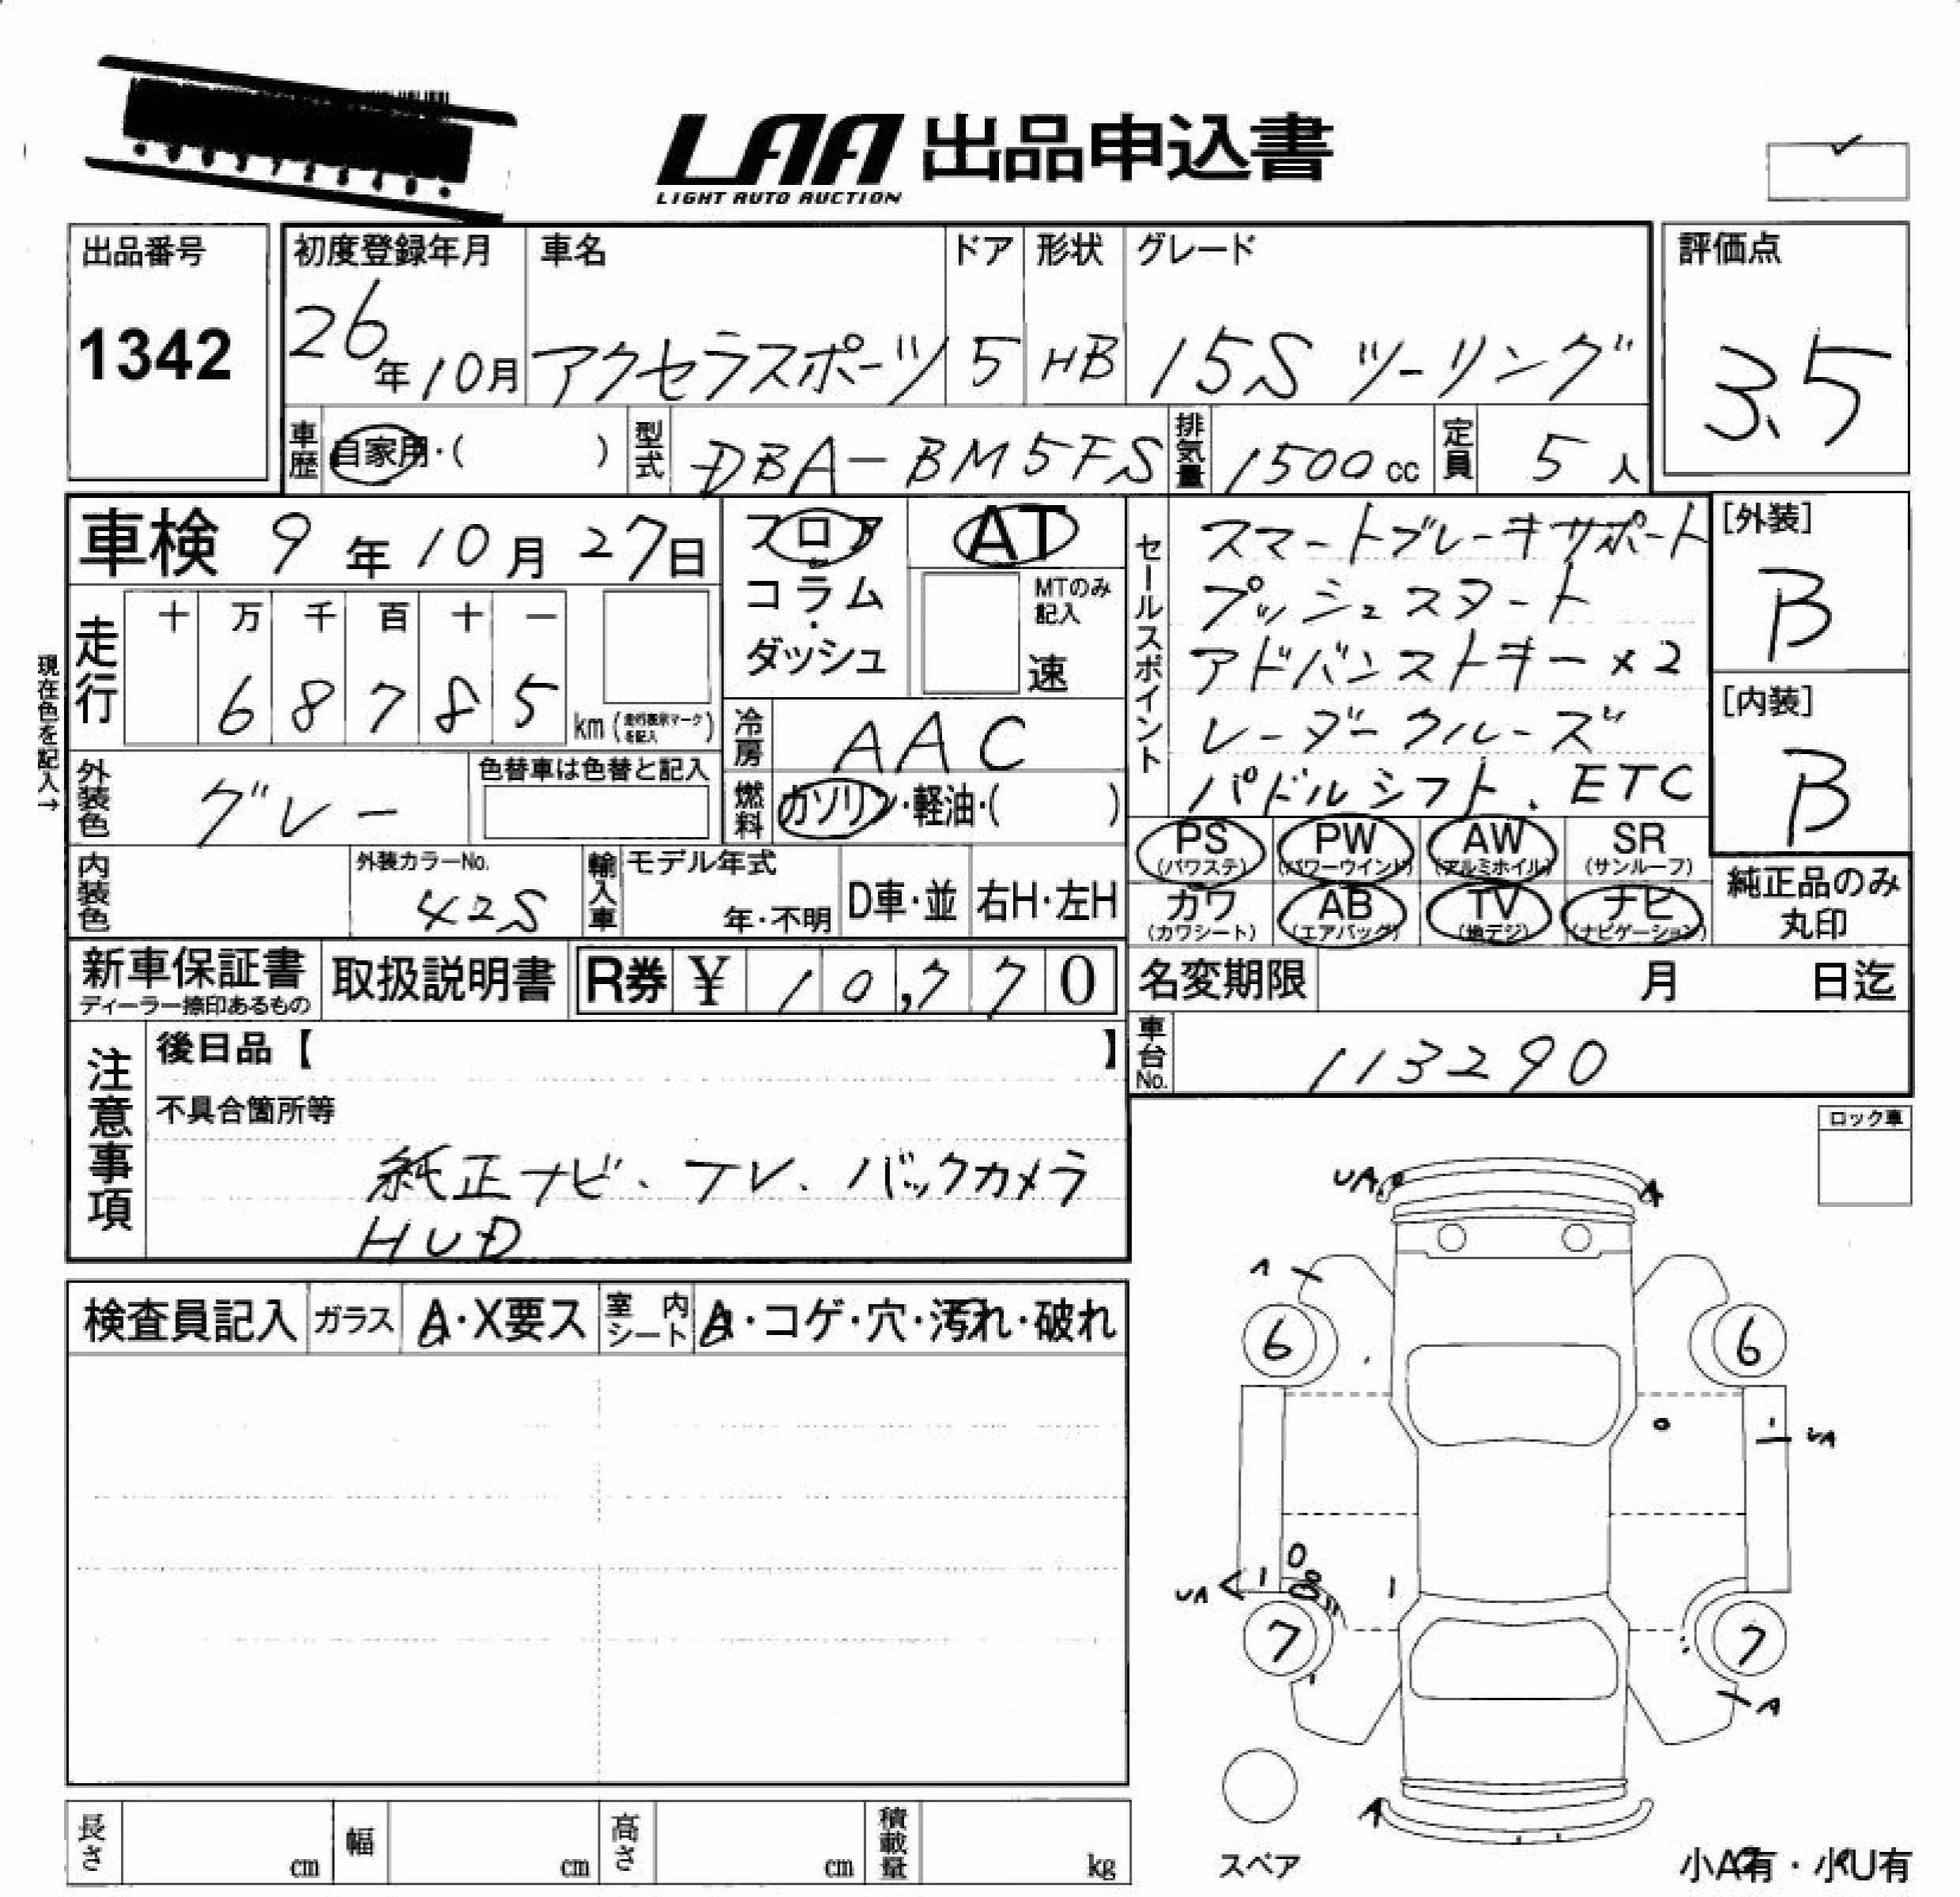 LAA 出品申込書
LIGHT AUTO AUCTION
出品番号
1342
初度登録年月
26年10月
車名
アクセラスポーツ
ドア
5
形状
HB
グレード
15S ツーリング
評価点
3.5
車歴
自家用・( )
型式
DBA-BM5FS
排気量
1500cc
定員
5人
車検 9年10月27日
フロア・コラム・ダッシュ
AT
MTのみ記入
速
セールスポイント
スマートブレーキサポート
プッシュスタート
アドバンストキー×2
レーダークルーズ
パドルシフト、ETC
[外装]
B
[内装]
B
現在色を記入→
走行
十 万 千 百 十 一
6 8 7 8 5
km(走行表示マークを記入)
冷房
AAC
外装色
グレー
色替車は色替と記入
燃料
ガソリン・軽油・( )
PS
(パワステ)
PW
(パワーウインド)
AW
(アルミホイル)
SR
(サンルーフ)
カワ
(カワシート)
AB
(エアバッグ)
TV
(地デジ)
ナビ
(ナビゲーション)
純正品のみ
丸印
内装色
外装カラーNo.
42S
輸入車
モデル年式
年・不明
D車・並
右H・左H
新車保証書
ディーラー捺印あるもの
取扱説明書
R券 ¥ 10,770
名変期限 月 日迄
注意事項
後日品【 】
不具合箇所等
純正ナビ、テレ、バックカメラ
HUD
車台No.
113290
ロック車
検査員記入
ガラス
A・X要ス
室内シート
・コゲ・穴・汚れ・破れ
UA
A
A
6
6
UA
UA
7
7
A
A
スペア
小A有・小U有
長さ cm
幅 cm
高さ cm
積載量 kg